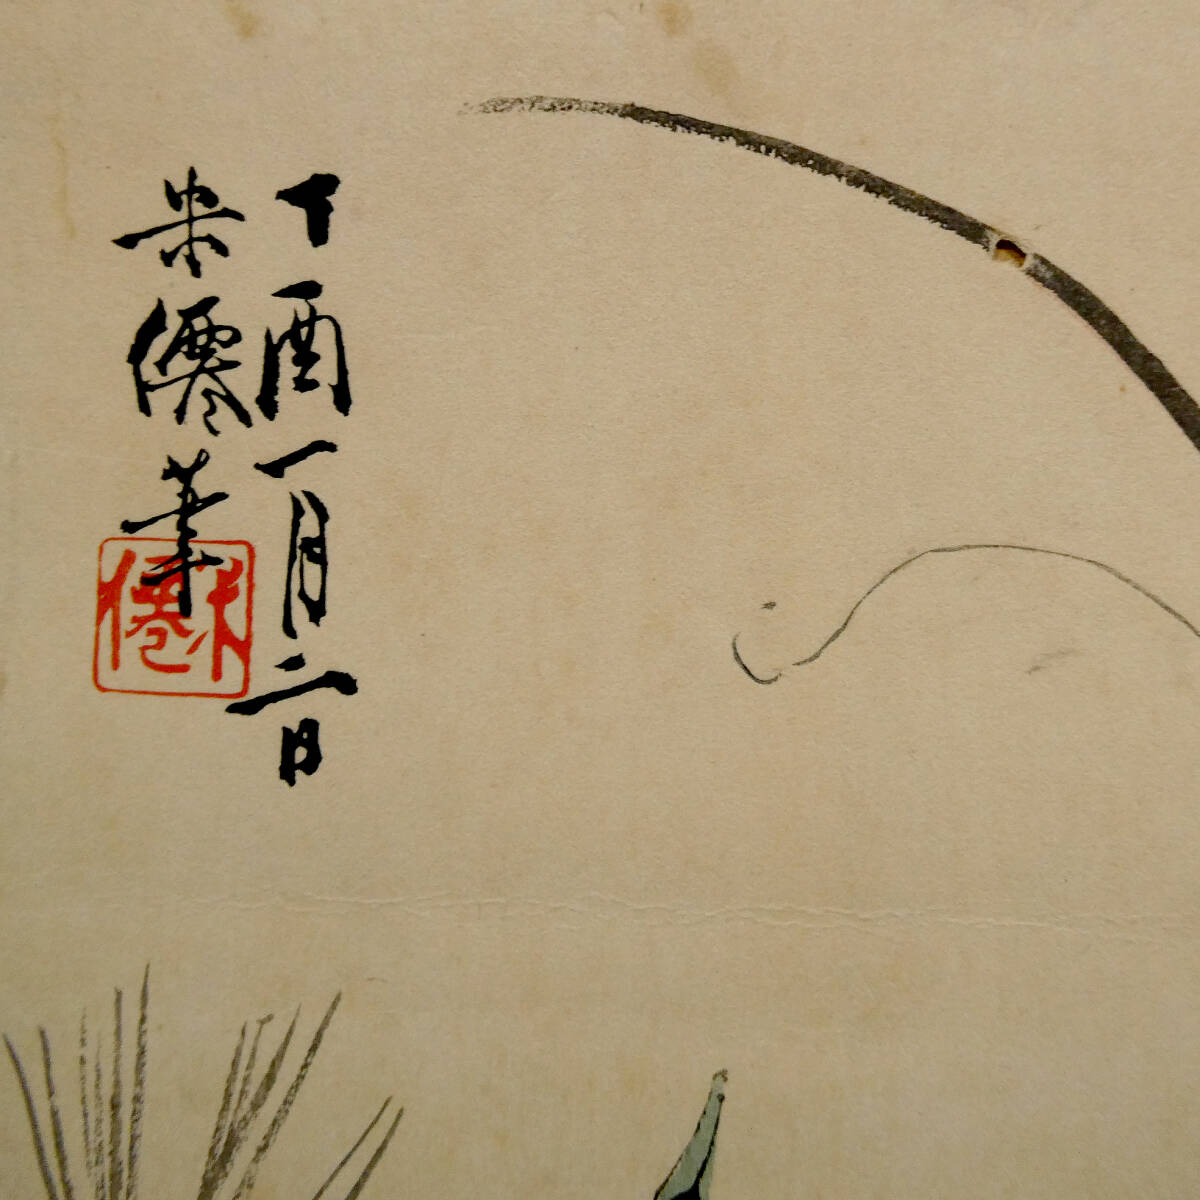 丁酉一月二日
米僊筆
米僊